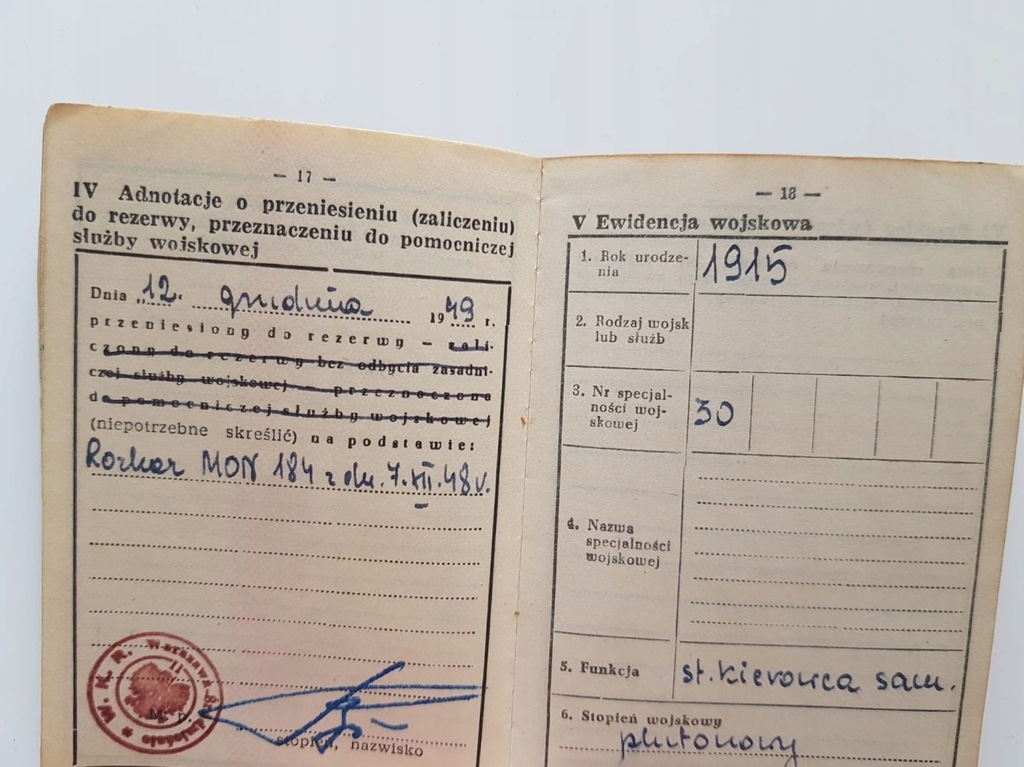 — 17 —
IV Adnotacje o przeniesieniu (zaliczeniu)
do rezerwy, przeznaczeniu do pomocniczej
służby wojskowej
Dnia „12. grudnia 1949 r.
przeniesiony do rezerwy — zali-
czony do rezerwy bez odbycia zasadni-
czej służby wojskowej — przeznaczono
do pomocniczej służby wojskowej
(niepotrzebne skreślić) na podstawie:
Rozkaz MON 184 z dn. 7.XII.48 r.
W. K. R. Warszawa-Śródmieście
M. p.
stopień, nazwisko
— 18 —
V Ewidencja wojskowa
1. Rok urodze-
nia
1915
2. Rodzaj wojsk
lub służb
3. Nr specjal-
ności woj-
skowej
30
4. Nazwa
specjalności
wojskowej
5. Funkcja
st. kierowca sam.
6. Stopień wojskowy
plutonowy